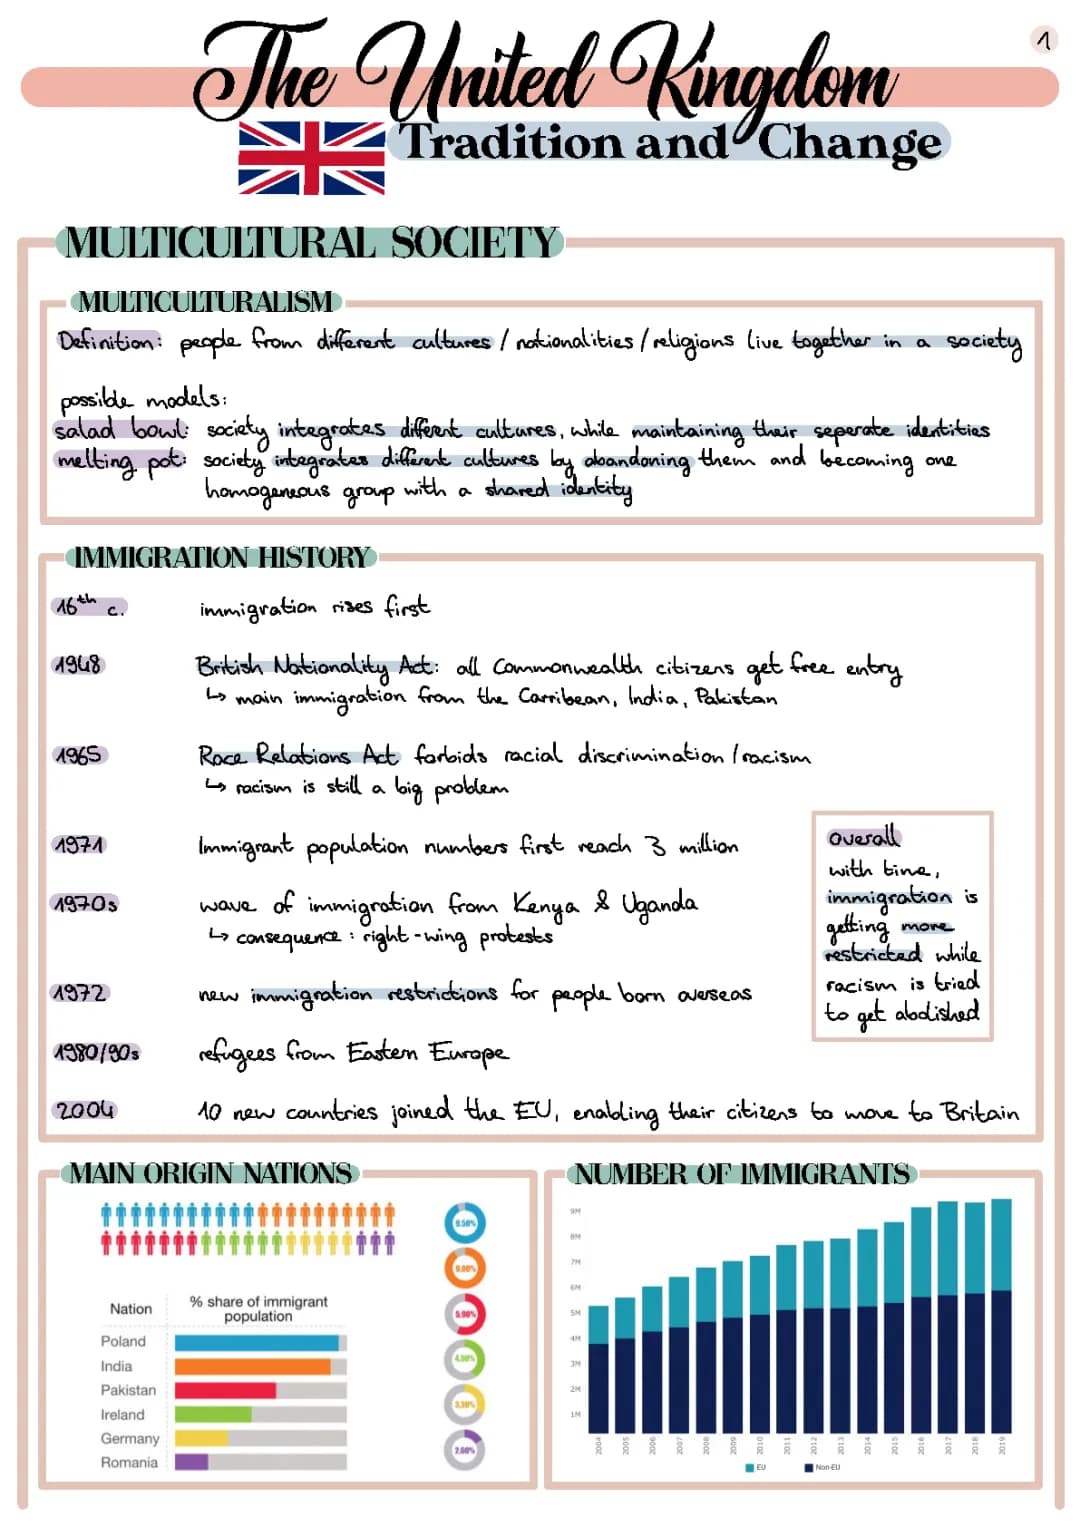 1
The United Kingdom
Tradition and Change
MULTICULTURAL SOCIETY
MULTICULTURALISM
Definition: people from different cultures / nationalities / religions live together in a society
possible models:
salad bowl: society integrates different cultures, while maintaining their seperate identities
melting pot: society integrates different cultures by abandoning them and becoming one
homogeneous group with a shared identity
IMMIGRATION HISTORY
16th c. immigration rises first
1948 British Nationality Act: all Commonwealth citizens get free entry
↳ main immigration from the Carribean, India, Pakistan
1965 Race Relations Act forbids racial discrimination / racism
↳ racism is still a big problem
1971 Immigrant population numbers first reach 3 million
1970s wave of immigration from Kenya & Uganda
↳ consequence: right-wing protests
1972 new immigration restrictions for people born overseas
1980/90s refugees from Eastern Europe
2004 10 new countries joined the EU, enabling their citizens to move to Britain
overall
with time,
immigration is
getting more
restricted while
racism is tried
to get abolished
MAIN ORIGIN NATIONS
9.50%
9.00%
5.90%
4.50%
3.30%
2.00%
Nation % share of immigrant
population
Poland
India
Pakistan
Ireland
Germany
Romania
NUMBER OF IMMIGRANTS
9M
8M
7M
6M
5M
4M
3M
2M
1M
2004 2005 2006 2007 2008 2009 2010 2011 2012 2013 2014 2015 2016 2017 2018 2019
EU Non-EU